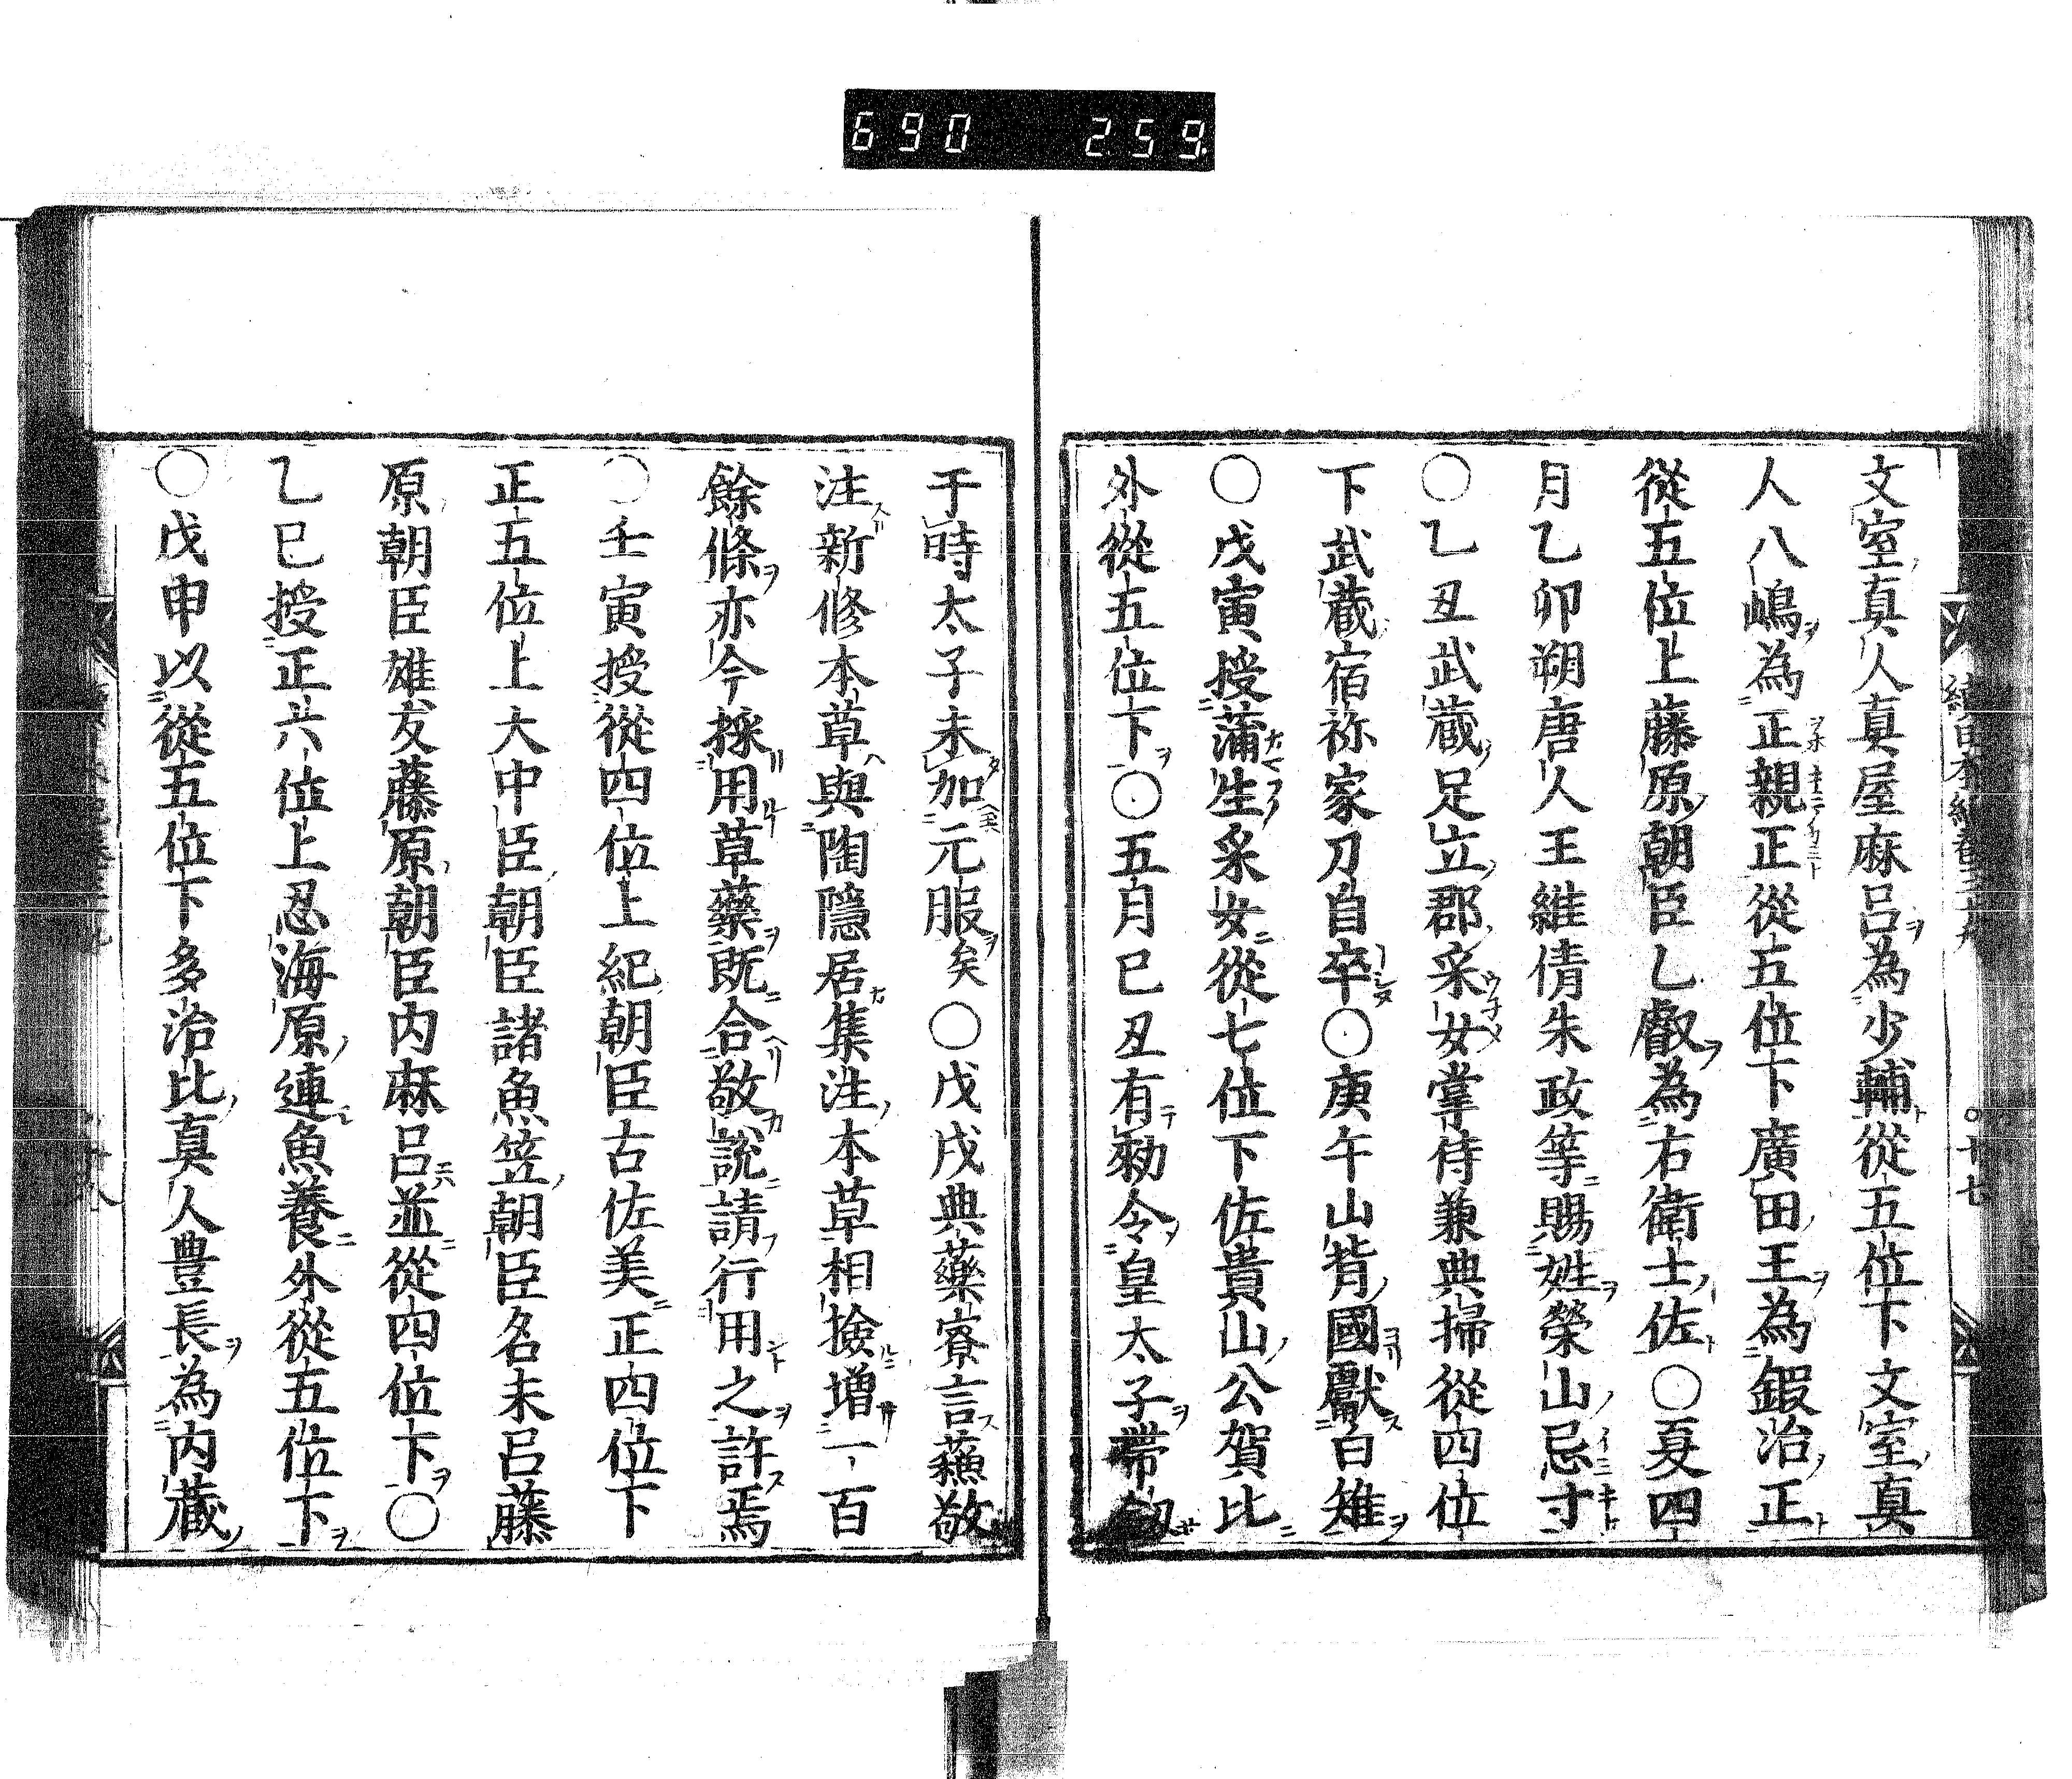 690 259
續日本紀卷三十九 ○十七
文室真人真屋麻呂為少輔從五位下文室真
人八嶋為正親正從五位下廣田王為鍛冶正
從五位上藤原朝臣乙叡為右衛士佐○夏四
月乙卯朔唐人王維倩朱政等賜姓榮山忌寸
○乙丑武藏足立郡采女掌侍兼典掃從四位
下武藏宿祢家刀自卒○庚午山背國獻白雉
○戊寅授蒲生采女從七位下佐貴山公賀比
外從五位下○五月己丑有勑令皇太子帶劔
于時太子未加元服矣○戊戌典藥寮言蘓敬
注新修本草與陶隱居集注本草相撿增一百
餘條亦今採用草藥既合敬說請行用之許焉
○壬寅授從四位上紀朝臣古佐美正四位下
正五位上大中臣朝臣諸魚笠朝臣名末呂藤
原朝臣雄友藤原朝臣内麻呂並從四位下○
乙巳授正六位上忍海原連魚養外從五位下
○戊申以從五位下多治比真人豊長為内藏